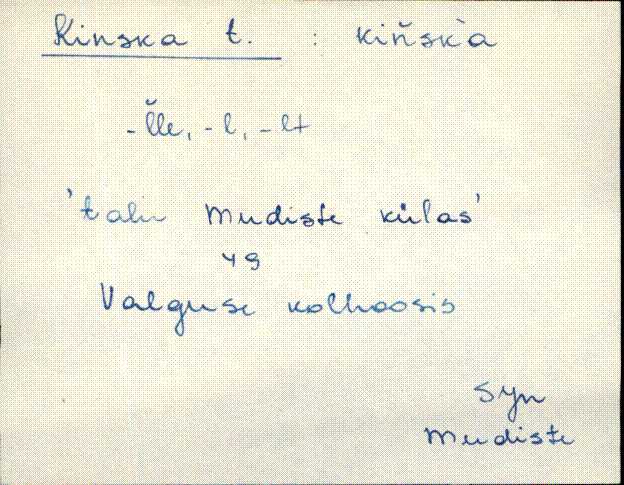 Kinska t. : kiňsk̀a
-l̆le, -l, -lt
'talu Mudiste külas'
49
Valguse kolhoosis
SJn
Mudiste